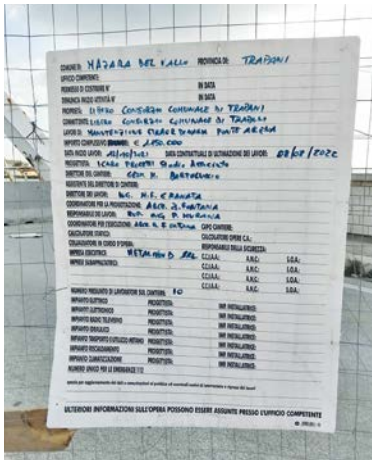 COMUNE DI: MAZARA DEL VALLO PROVINCIA DI: TRAPANI
UFFICIO COMPETENTE:
PERMESSO DI COSTRUIRE N° IN DATA
DENUNCIA INIZIO ATTIVITÀ N° IN DATA
PROPRIETÀ: LIBERO CONSORZIO COMUNALE DI TRAPANI
COMMITTENTE: LIBERO CONSORZIO COMUNALE DI TRAPANI
LAVORI DI: MANUTENZIONE STRAORDINARIA PONTE ARENA
IMPORTO COMPLESSIVO € 1.150.000
DATA INIZIO LAVORI DATA CONTRATTUALE DI ULTIMAZIONE DEI LAVORI: 08/08/2022
PROGETTISTA: ICARO PROGETTI
DIRETTORE DEL CANTIERE: GEOM. M.
ASSISTENTE DEL DIRETTORE DI CANTIERE:
DIRETTORE DEI LAVORI: ING. M.F. GRANATA
COORDINATORE PER LA PROGETTAZIONE: ARCH. FONTANA
RESPONSABILE DEI LAVORI: ING. P. MURANIA
COORDINATORE PER L'ESECUZIONE: ARCH. FONTANA CAPO CANTIERE:
CALCOLATORE STATICO: CALCOLATORE OPERE C.A.:
COLLAUDATORE IN CORSO D'OPERA: RESPONSABILE DELLA SICUREZZA:
IMPRESA ESECUTRICE: C.C.I.A.A.: A.N.C.: S.O.A.:
IMPRESE SUBAPPALTATRICI: C.C.I.A.A.: A.N.C.: S.O.A.:
C.C.I.A.A.: A.N.C.: S.O.A.:
C.C.I.A.A.: A.N.C.: S.O.A.:
NUMERO PRESUNTO DI LAVORATORI SUL CANTIERE: 10
IMPIANTO ELETTRICO PROGETTISTA: IMP. INSTALLATRICE:
IMPIANTO ELETTRONICO PROGETTISTA: IMP. INSTALLATRICE:
IMPIANTO RADIO TELEVISIVO PROGETTISTA: IMP. INSTALLATRICE:
IMPIANTO IDRAULICO PROGETTISTA: IMP. INSTALLATRICE:
IMPIANTO TRASPORTO E UTILIZZO METANO PROGETTISTA: IMP. INSTALLATRICE:
IMPIANTO RISCALDAMENTO PROGETTISTA: IMP. INSTALLATRICE:
IMPIANTO CLIMATIZZAZIONE PROGETTISTA: IMP. INSTALLATRICE:
NUMERO UNICO PER LE EMERGENZE 112
ULTERIORI INFORMAZIONI SULL'OPERA POSSONO ESSERE ASSUNTE PRESSO L'UFFICIO COMPETENTE